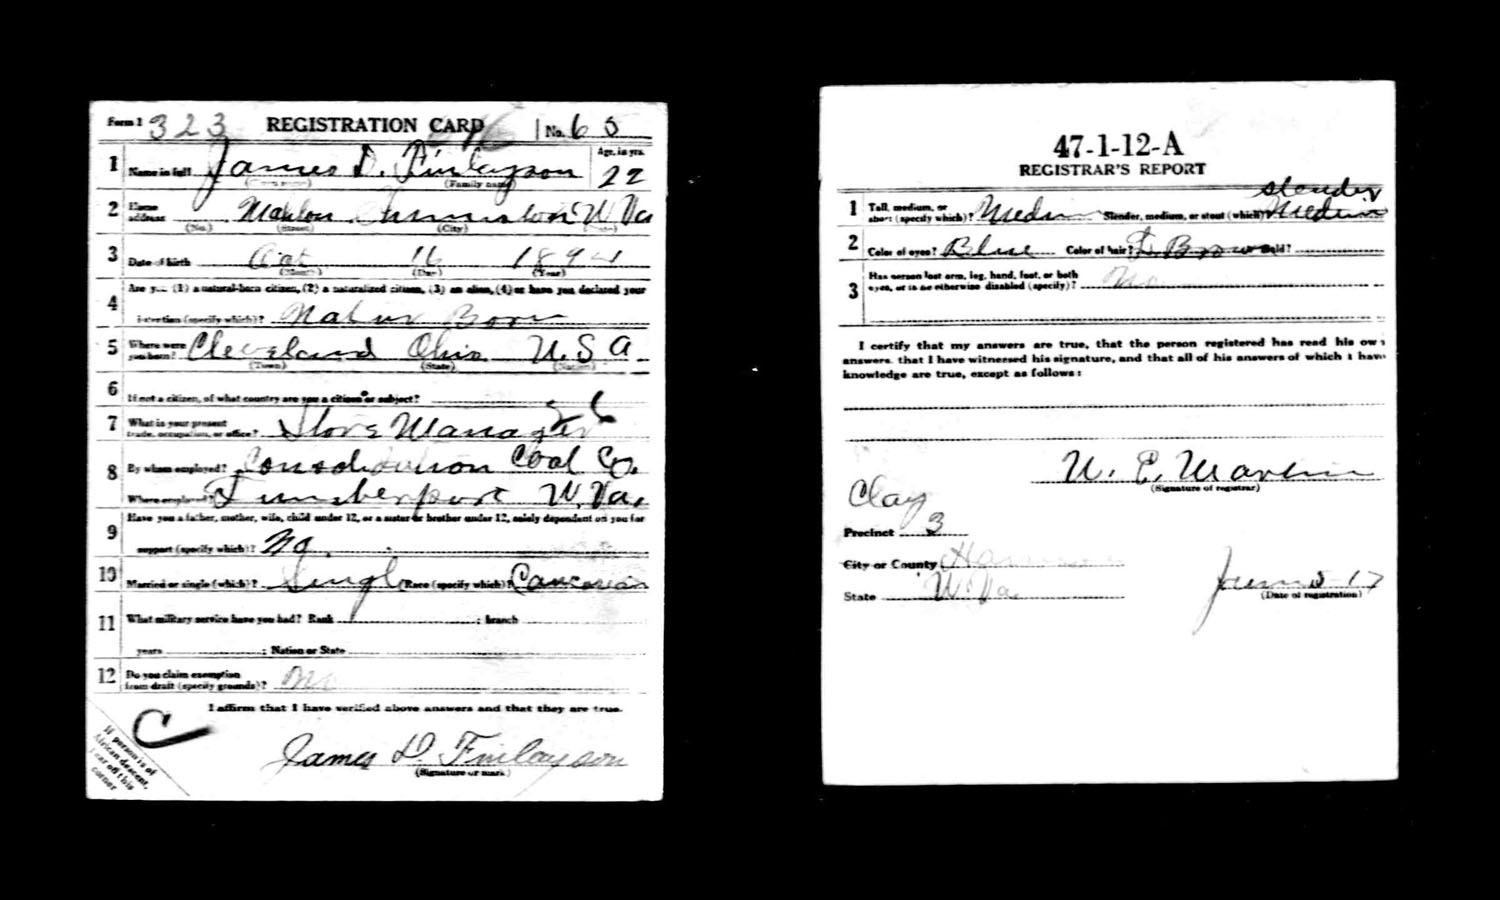 Form 1 323 REGISTRATION CARD No. 65
1 Name in full James D. Finlayson Age, in yrs. 22
(Given name) (Family name)
2 Home address W Va
(No.) (Street) (City) (State)
3 Date of birth Oct 16 1894
(Month) (Day) (Year)
4 Are you (1) a natural-born citizen, (2) a naturalized citizen, (3) an alien, (4) or have you declared your
intention (specify which)? Natur Born
5 Where were you born? Cleveland Ohio U.S A
(Town) (State) (Nation)
6 If not a citizen, of what country are you a citizen or subject?
7 What is your present trade, occupation, or office? Store Manager
8 By whom employed? Consolidation Coal Co.
Where employed? W. Va.
9 Have you a father, mother, wife, child under 12, or a sister or brother under 12, solely dependent on you for
support (specify which)? No
10 Married or single (which)? Single Race (specify which)? Caucasian
11 What military service have you had? Rank ; branch
years ; Nation or State
12 Do you claim exemption from draft (specify grounds)? No
I affirm that I have verified above answers and that they are true.
C
James D. Finlayson
(Signature or mark)
If person is of African descent, tear off this corner
47-1-12-A
REGISTRAR'S REPORT
slender
1 Tall, medium, or short (specify which)? Medium Slender, medium, or stout (which)? Medium
2 Color of eyes? Blue Color of hair? D. Brown Bald?
3 Has person lost arm, leg, hand, foot, or both eyes, or is he otherwise disabled (specify)? No
I certify that my answers are true, that the person registered has read his own
answers, that I have witnessed his signature, and that all of his answers of which I have
knowledge are true, except as follows:
(Signature of registrar)
Clay
Precinct 3
City or County
State W. Va.
June 5 17
(Date of registration)